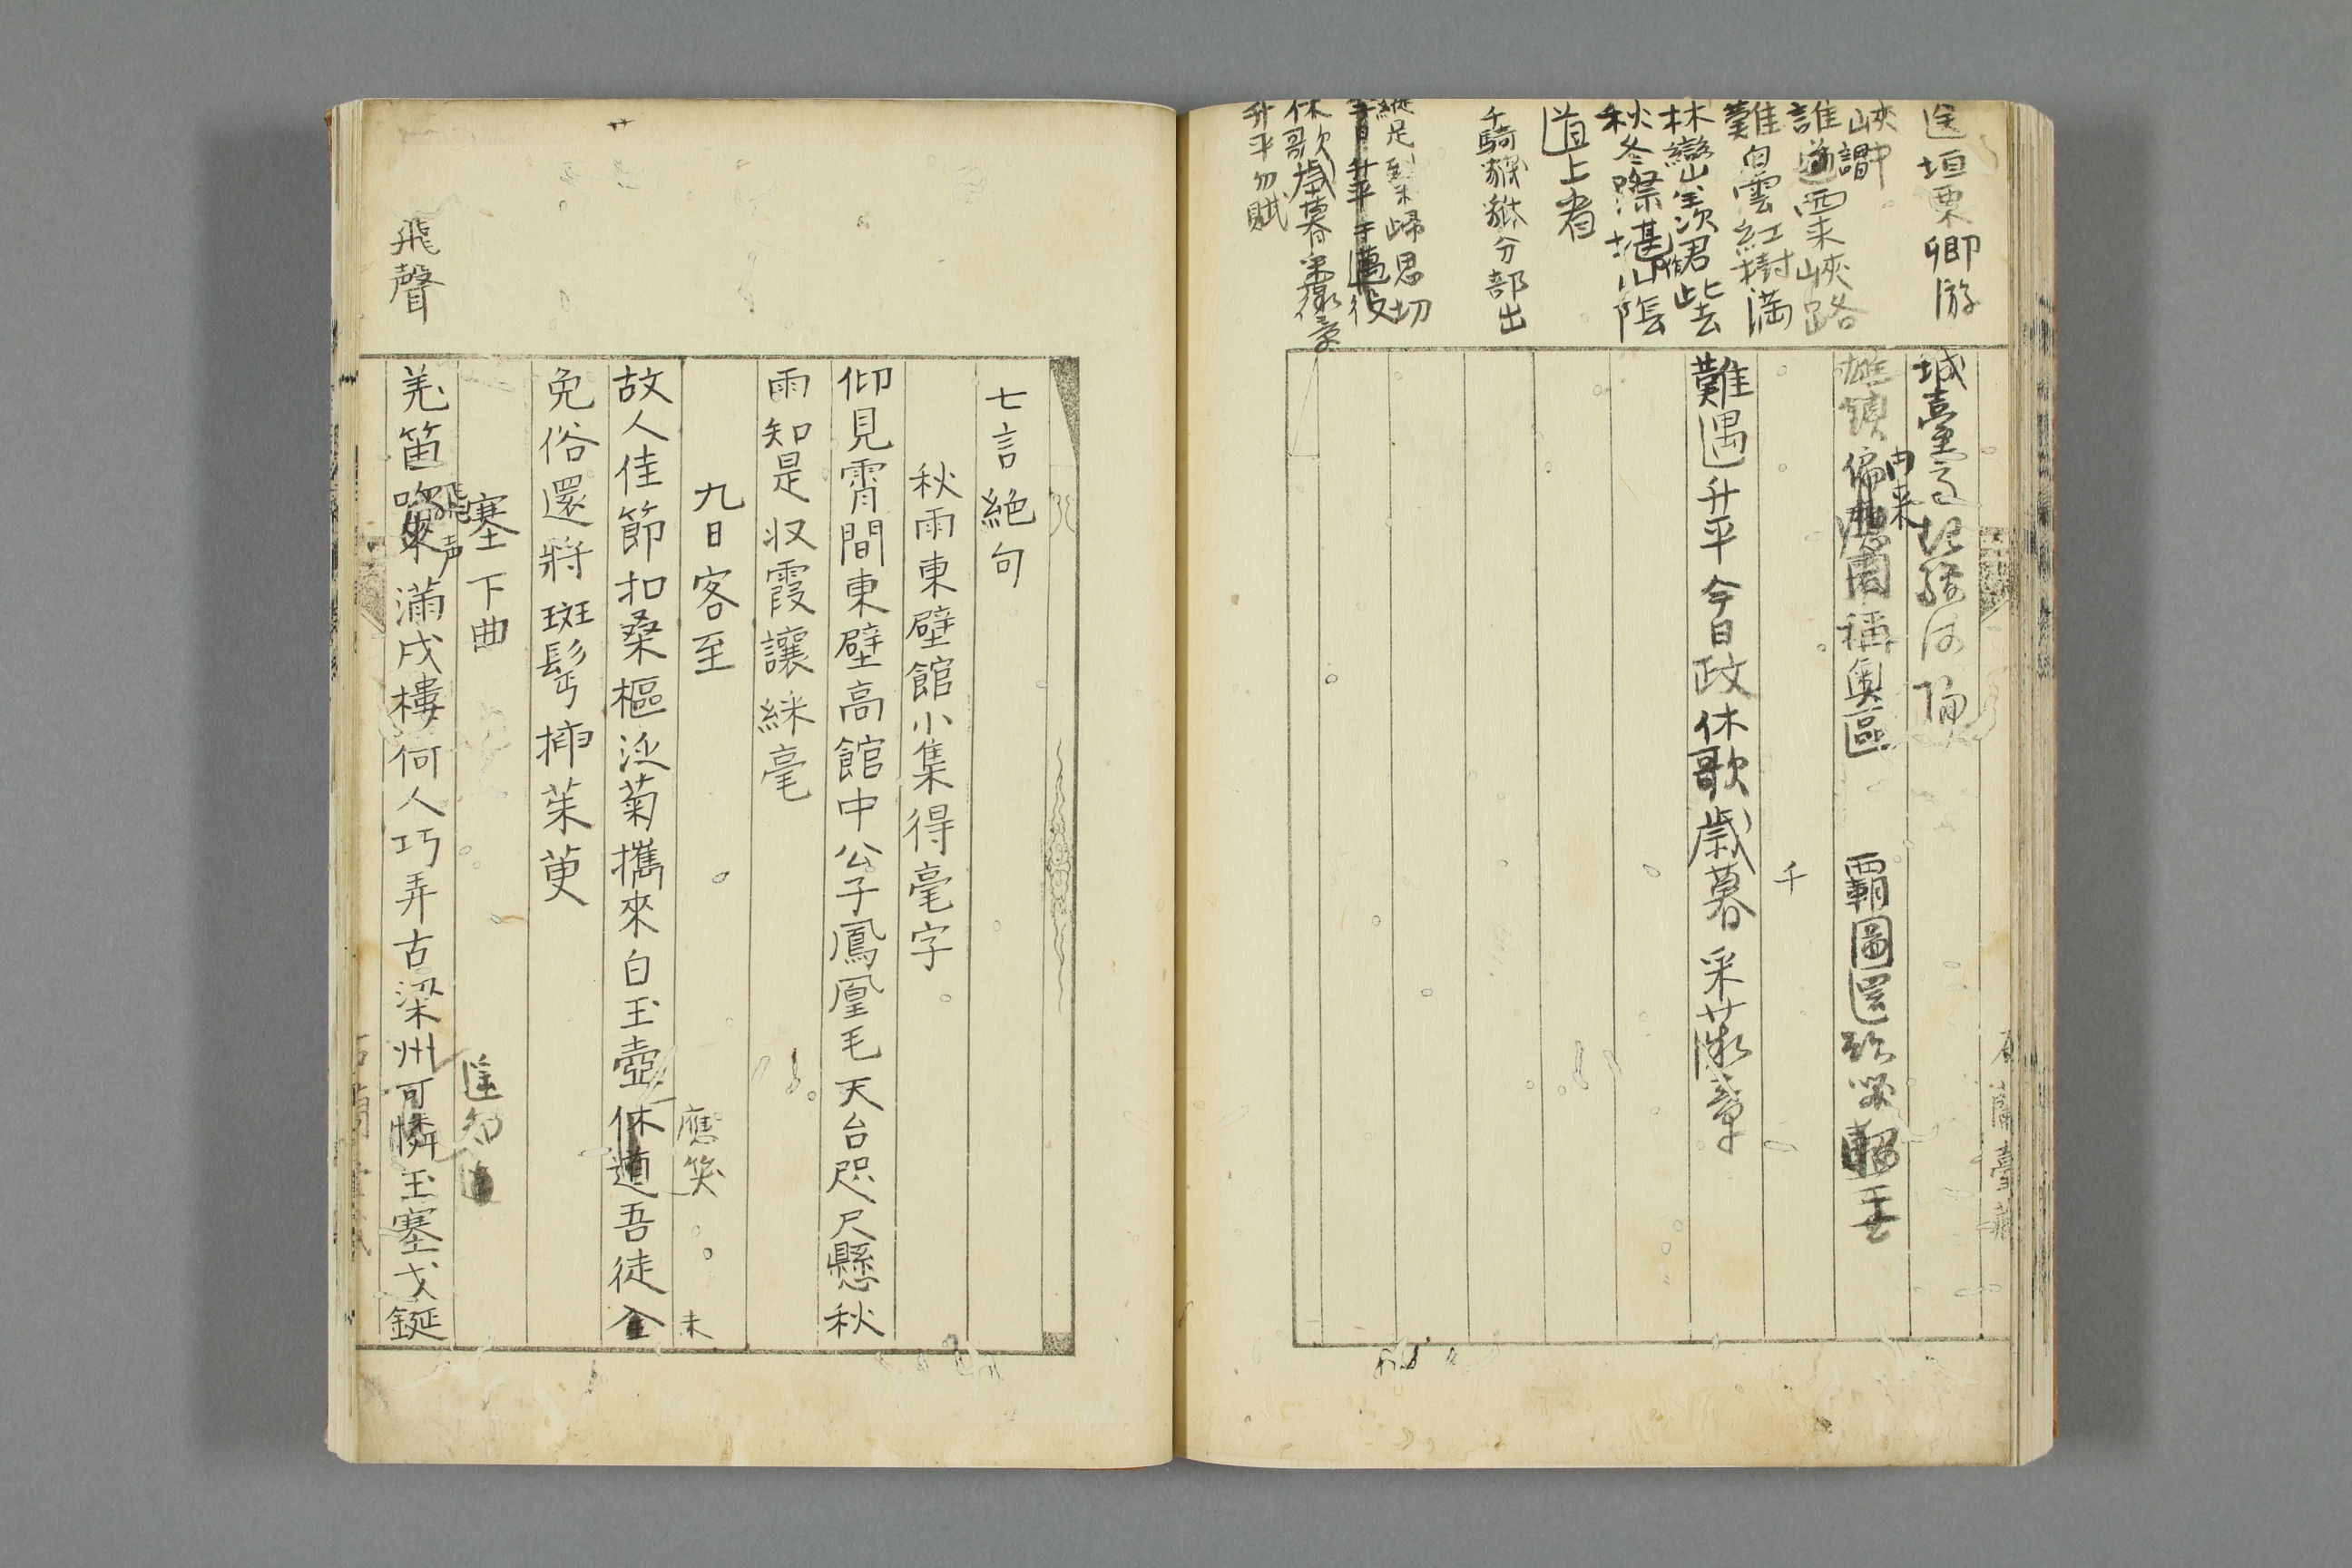 送垣栗卿游
峽中
誰謂栗峽路
難白雲紅樹滿
林巒羨君此去
秋冬際堪山陰
道上看
千騎貔貅分部出
縱是到來歸思切
休歌歲暮采薇章
升平勿賦
城臺
雄鎮偏應用稱奧區 霸圖還
由来
千
難遇升平今日政休歌歲暮采薇章
七言絕句
秋雨東壁館小集得毫字
仰見霄間東壁高館中公子鳳凰毛天台咫尺懸秋
雨知是收霞讓綵毫
九日客至
應笑
未
故人佳節扣桑樞泛菊攜來白玉壺休道吾徒全
免俗還將斑髩挿茱萸
塞下曲
飛声
飛聲
羌笛吹來滿戍樓何人巧弄古梁州可憐玉塞戈鋋